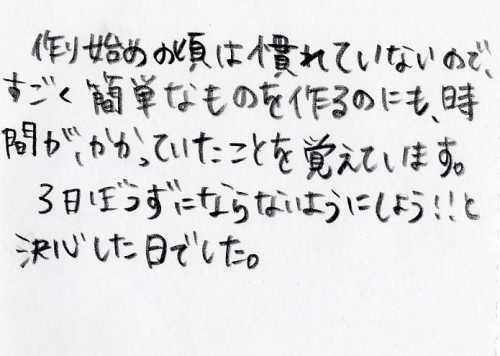 作り始めの頃は慣れていないので、
すごく簡単なものを作るのにも、時
間が、かかっていたことを覚えています。
3日ぼうずにならないようにしよう!!と
決心した日でした。